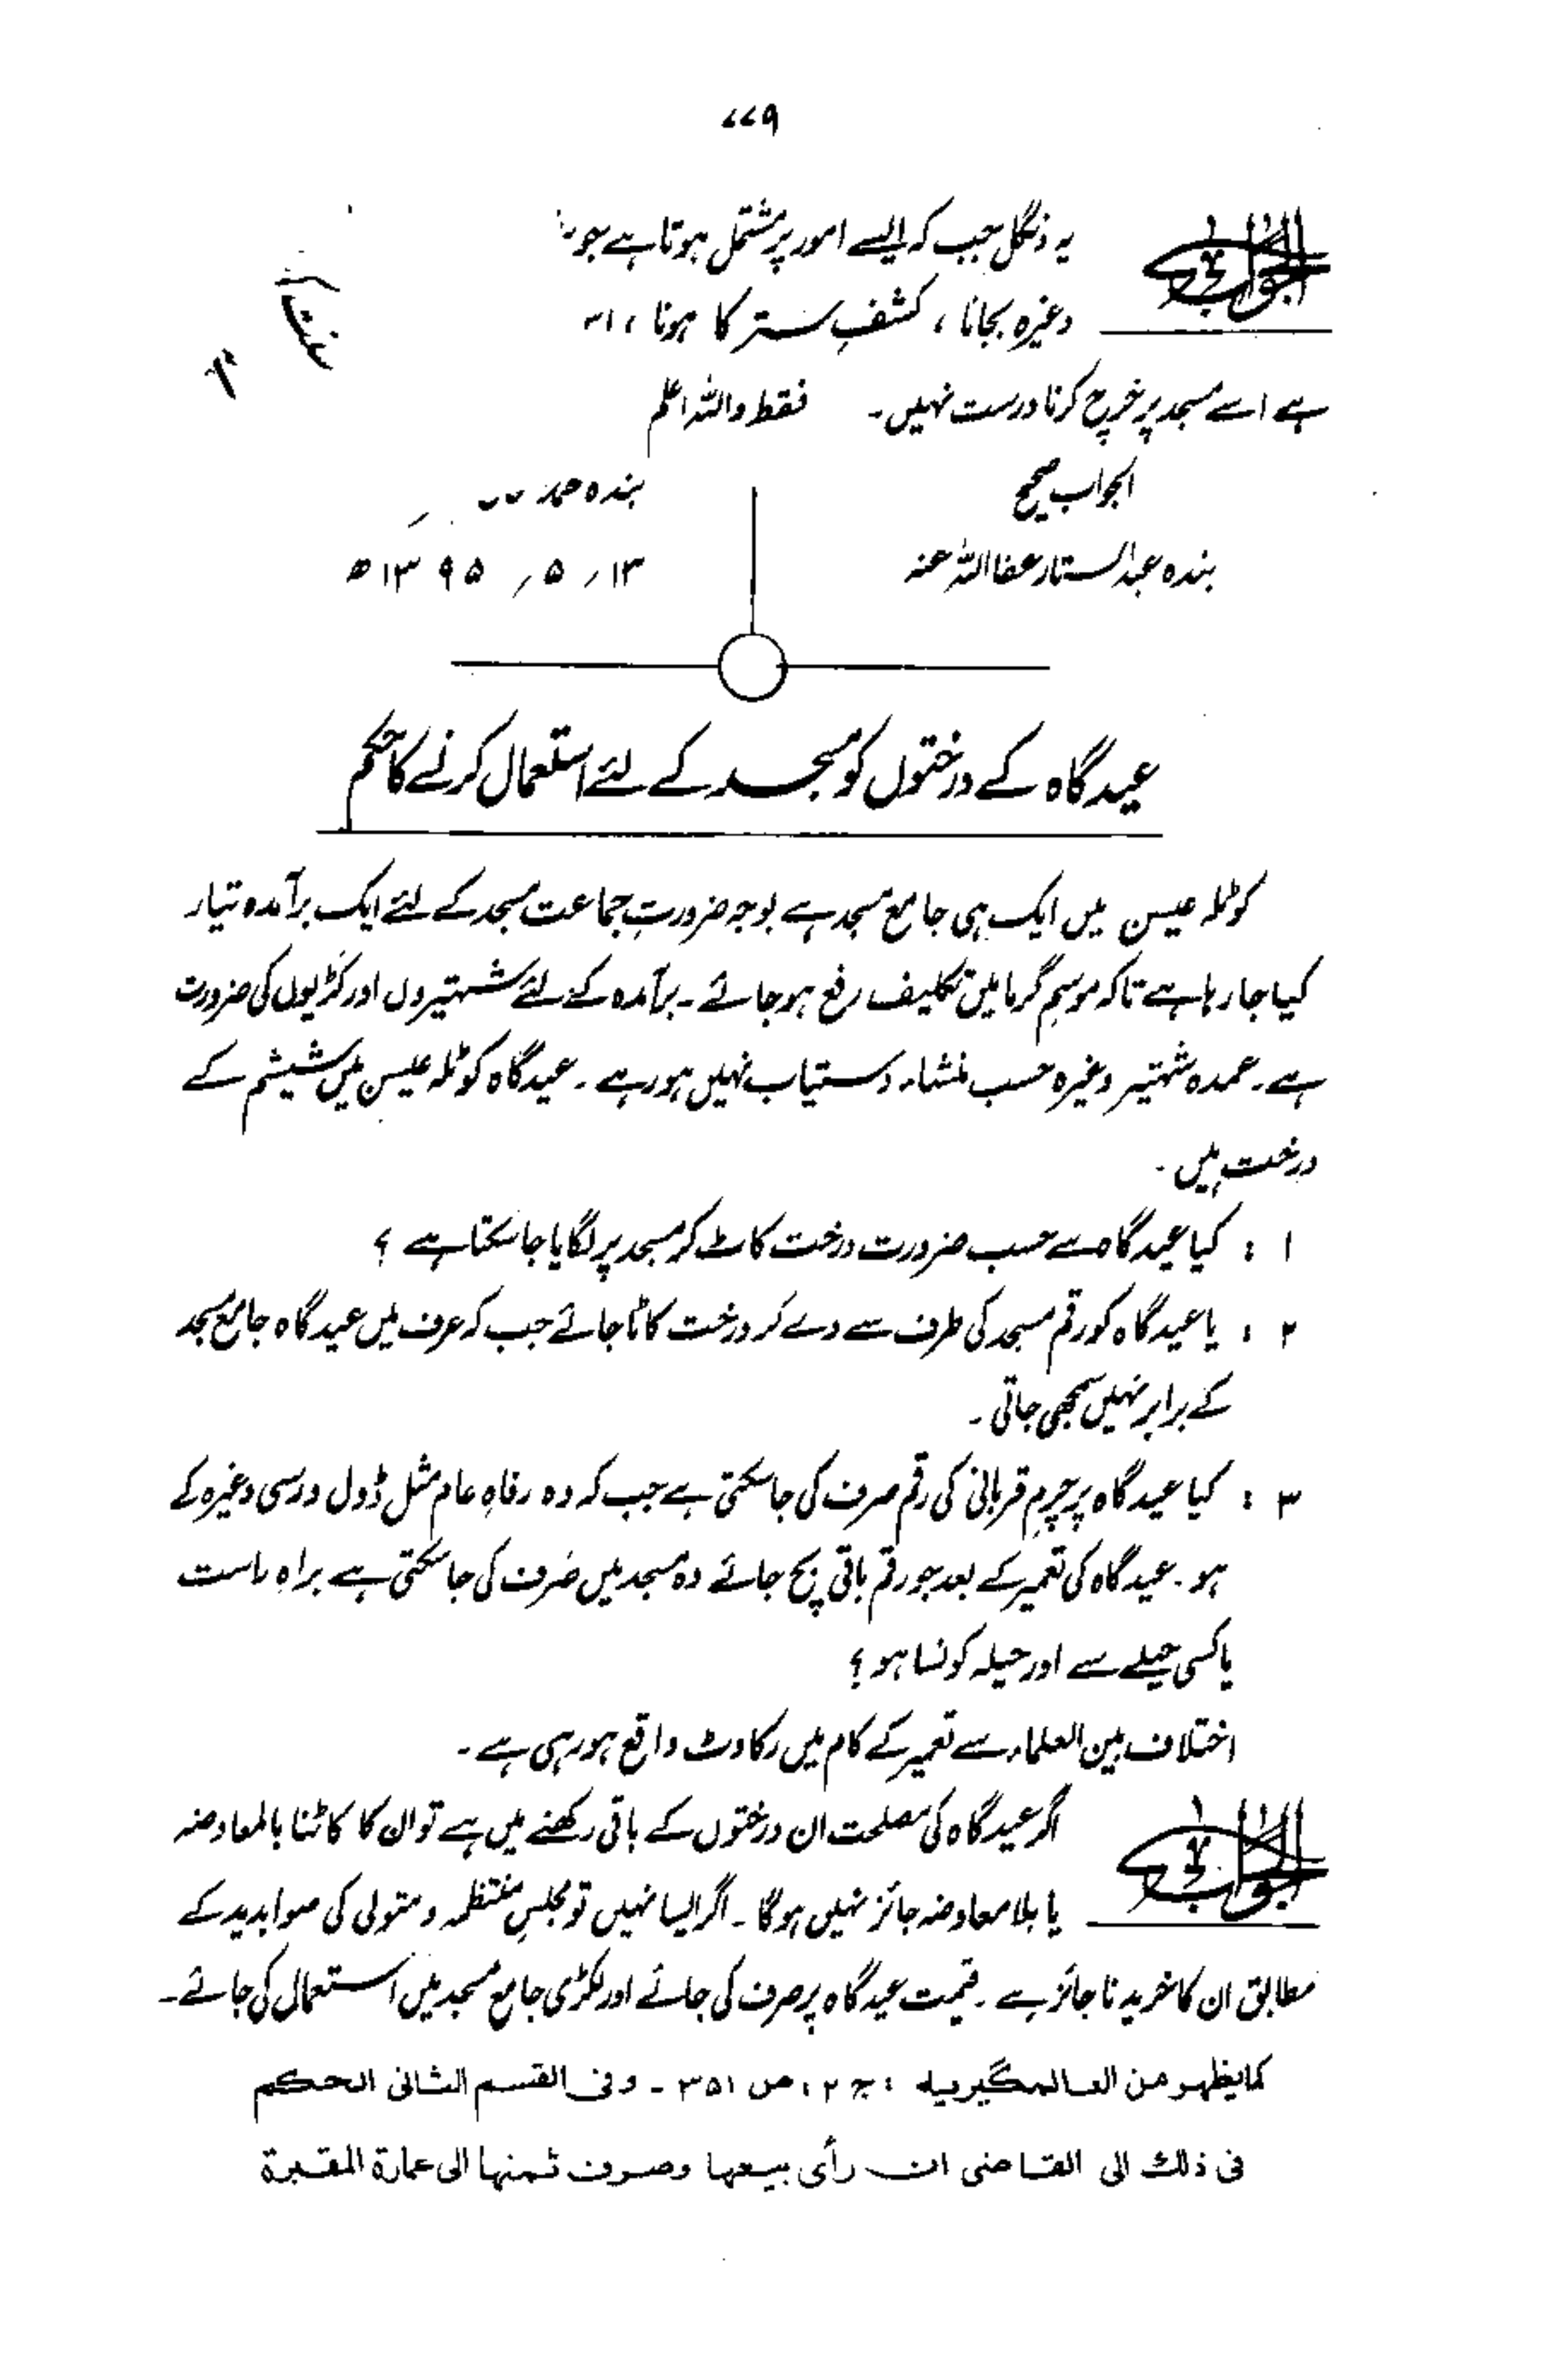 ۷۷۹
الجواب یہ دنگل جب کہ ایسے امور پر مشتمل ہوتا ہے جو
وغیرہ بجانا ، کشفِ ستر کا ہونا ،
ہے اسے مسجد پر خرچ کرنا درست نہیں۔ فقط واللہ اعلم
الجواب صحیح
بندہ عبدالستار عفا اللہ عنہ
بندہ محمد
۱۳ ؍ ۵ ؍ ۱۳۹۵ ھ
عیدگاہ کے درختوں کو مسجد کے لئے استعمال کرنے کا حکم
کوٹلہ عیسن میں ایک ہی جامع مسجد ہے بوجہ ضرورتِ جماعت مسجد کے لئے ایک برآمدہ تیار
کیا جا رہا ہے تاکہ موسمِ گرما میں تکلیف رفع ہو جائے ۔ برآمدہ کے لئے شہتیروں اور کڑیوں کی ضرورت
ہے ۔ عمدہ شہتیر وغیرہ حسب منشاء دستیاب نہیں ہو رہے ۔ عیدگاہ کوٹلہ عیسن میں شیشم کے
درخت ہیں ۔
۱ : کیا عیدگاہ سے حسب ضرورت درخت کاٹ کر مسجد پر لگایا جا سکتا ہے ؟
۲ : یا عیدگاہ کو رقم مسجد کی طرف سے دے کر درخت کاٹا جائے جب کہ عرف میں عیدگاہ جامع مسجد
کے برابر نہیں سمجھی جاتی ۔
۳ : کیا عیدگاہ پر چرمِ قربانی کی رقم صرف کی جا سکتی ہے جب کہ وہ رفاہِ عام مثل ڈول و رسی وغیرہ کے
ہو ۔ عیدگاہ کی تعمیر کے بعد جو رقم باقی بچ جائے وہ مسجد میں صَرف کی جا سکتی ہے براہِ راست
یا کسی حیلے سے اور حیلہ کونسا ہو ؟
اختلاف بین العلماء سے تعمیر کے کام میں رکاوٹ واقع ہو رہی ہے ۔
الجواب اگر عیدگاہ کی مصلحت ان درختوں کے باقی رکھنے میں ہے تو ان کا کاٹنا بالمعاوضہ
یا بلامعاوضہ جائز نہیں ہوگا ۔ اگر ایسا نہیں تو مجلسِ منتظمہ و متولی کی صوابدید کے
مطابق ان کا خریدنا جائز ہے ۔ قیمت عیدگاہ پر صرف کی جائے اور لکڑی جامع مسجد میں استعمال کی جائے ۔
کما یظھر من العالمگیریہ : ج ۲ : ص ۳۵۱ ۔ وفی القسم الثانی الحکم
فی ذلك الی القاضی ان رأی بیعھا وصرف ثمنھا الی عمارة المقبرة